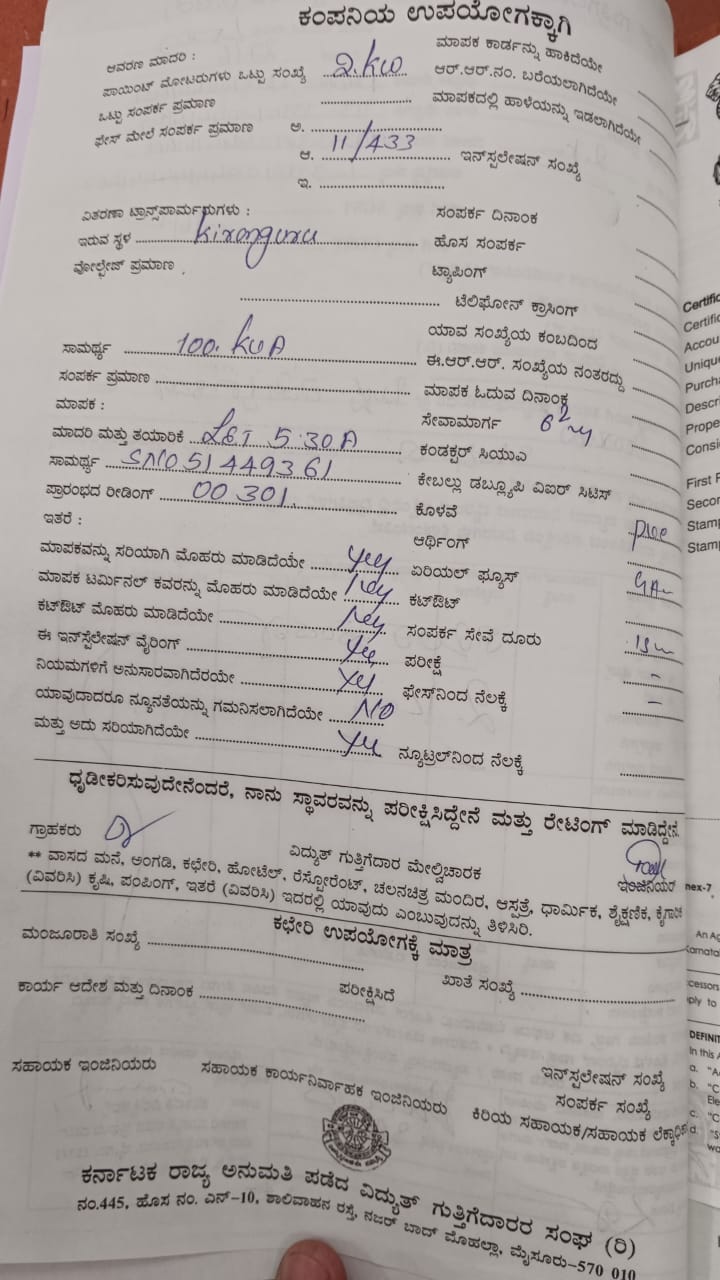 ಕಂಪನಿಯ ಉಪಯೋಗಕ್ಕಾಗಿ
ಆವರಣ ಮಾದರಿ :
ಪಾಯಿಂಟ್ ಮೋಟರುಗಳು ಒಟ್ಟು ಸಂಖ್ಯೆ 2.KW
ಒಟ್ಟು ಸಂಪರ್ಕ ಪ್ರಮಾಣ
ಫೇಸ್ ಮೇಲೆ ಸಂಪರ್ಕ ಪ್ರಮಾಣ ಅ.
ಆ. 11/433
ಇ.
ವಿತರಣಾ ಟ್ರಾನ್ಸ್‌ಪಾರ್ಮರುಗಳು :
ಇರುವ ಸ್ಥಳ Kiranguru
ವೋಲ್ಟೇಜ್ ಪ್ರಮಾಣ
ಸಾಮರ್ಥ್ಯ 100. KVA
ಸಂಪರ್ಕ ಪ್ರಮಾಣ
ಮಾಪಕ :
ಮಾದರಿ ಮತ್ತು ತಯಾರಿಕೆ L&T 5-30A
ಸಾಮರ್ಥ್ಯ SNO 51449361
ಪ್ರಾರಂಭದ ರೀಡಿಂಗ್ 00301
ಇತರೆ :
ಮಾಪಕವನ್ನು ಸರಿಯಾಗಿ ಮೊಹರು ಮಾಡಿದೆಯೇ yes
ಮಾಪಕ ಟರ್ಮಿನಲ್ ಕವರನ್ನು ಮೊಹರು ಮಾಡಿದೆಯೇ
ಕಟ್‌ಔಟ್ ಮೊಹರು ಮಾಡಿದೆಯೇ
ಈ ಇನ್‌ಸ್ಪೆಲೇಷನ್ ವೈರಿಂಗ್ Yes
ನಿಯಮಗಳಿಗೆ ಅನುಸಾರವಾಗಿದೆರಯೇ Yes
ಯಾವುದಾದರೂ ನ್ಯೂನತೆಯನ್ನು ಗಮನಿಸಲಾಗಿದೆಯೇ NO
ಮತ್ತು ಅದು ಸರಿಯಾಗಿದೆಯೇ Yes
ಮಾಪಕ ಕಾರ್ಡನ್ನು ಹಾಕಿದೆಯೇ
ಆರ್.ಆರ್.ನಂ. ಬರೆಯಲಾಗಿದೆಯೇ
ಮಾಪಕದಲ್ಲಿ ಹಾಳೆಯನ್ನು ಇಡಲಾಗಿದೆಯೇ
ಇನ್‌ಸ್ಪಲೇಷನ್ ಸಂಖ್ಯೆ
ಸಂಪರ್ಕ ದಿನಾಂಕ
ಹೊಸ ಸಂಪರ್ಕ
ಟ್ಯಾಪಿಂಗ್
ಟೆಲಿಫೋನ್ ಕ್ರಾಸಿಂಗ್
ಯಾವ ಸಂಖ್ಯೆಯ ಕಂಬದಿಂದ
ಈ.ಆರ್.ಆರ್. ಸಂಖ್ಯೆಯ ನಂತರದ್ದು
ಮಾಪಕ ಓದುವ ದಿನಾಂಕ
ಸೇವಾಮಾರ್ಗ
ಕಂಡಕ್ಟರ್ ಸಿಯುವಿ
ಕೇಬಲ್ಲು ಡಬ್ಲ್ಯೂಪಿ ವಿಐರ್ ಸಿಟಿಸ್
ಕೊಳವೆ
ಆರ್ಥಿಂಗ್
ಏರಿಯಲ್ ಫ್ಯೂಸ್
ಕಟ್‌ಔಟ್
ಸಂಪರ್ಕ ಸೇವೆ ದೂರು
ಪರೀಕ್ಷೆ
ಫೇಸ್‌ನಿಂದ ನೆಲಕ್ಕೆ
ನ್ಯೂಟ್ರಲ್‌ನಿಂದ ನೆಲಕ್ಕೆ
ಧೃಡೀಕರಿಸುವುದೇನೆಂದರೆ, ನಾನು ಸ್ಥಾವರವನ್ನು ಪರೀಕ್ಷಿಸಿದ್ದೇನೆ ಮತ್ತು ರೇಟಿಂಗ್ ಮಾಡಿದ್ದೇನೆ.
ಗ್ರಾಹಕರು ವಿದ್ಯುತ್ ಗುತ್ತಿಗೆದಾರ ಮೇಲ್ವಿಚಾರಕ ಇಂಜಿನಿಯರ
** ವಾಸದ ಮನೆ, ಅಂಗಡಿ, ಕಛೇರಿ, ಹೋಟೆಲ್, ರೆಸ್ಟೋರೆಂಟ್, ಚಲನಚಿತ್ರ ಮಂದಿರ, ಆಸ್ಪತ್ರೆ, ಧಾರ್ಮಿಕ, ಶೈಕ್ಷಣಿಕ,
(ವಿವರಿಸಿ) ಕೃಷಿ, ಪಂಪಿಂಗ್, ಇತರೆ (ವಿವರಿಸಿ) ಇದರಲ್ಲಿ ಯಾವುದು ಎಂಬುವುದನ್ನು ತಿಳಿಸಿರಿ.
ಕಛೇರಿ ಉಪಯೋಗಕ್ಕೆ ಮಾತ್ರ
ಮಂಜೂರಾತಿ ಸಂಖ್ಯೆ ಖಾತೆ ಸಂಖ್ಯೆ
ಕಾರ್ಯ ಆದೇಶ ಮತ್ತು ದಿನಾಂಕ ಪರೀಕ್ಷಿಸಿದೆ
ಸಹಾಯಕ ಇಂಜಿನಿಯರು ಸಹಾಯಕ ಕಾರ್ಯನಿರ್ವಾಹಕ ಇಂಜಿನಿಯರು ಇನ್‌ಸ್ಪಲೇಷನ್ ಸಂಖ್ಯೆ
ಸಂಪರ್ಕ ಸಂಖ್ಯೆ
ಕಿರಿಯ ಸಹಾಯಕ/ಸಹಾಯಕ
ಕರ್ನಾಟಕ ರಾಜ್ಯ ಅನುಮತಿ ಪಡೆದ ವಿದ್ಯುತ್ ಗುತ್ತಿಗೆದಾರರ ಸಂಘ (ರಿ)
ನಂ.445, ಹೊಸ ನಂ. ಎನ್-10, ಶಾಲಿವಾಹನ ರಸ್ತೆ, ನಜರ್ ಬಾದ್ ಮೊಹಲ್ಲಾ, ಮೈಸೂರು-570 010